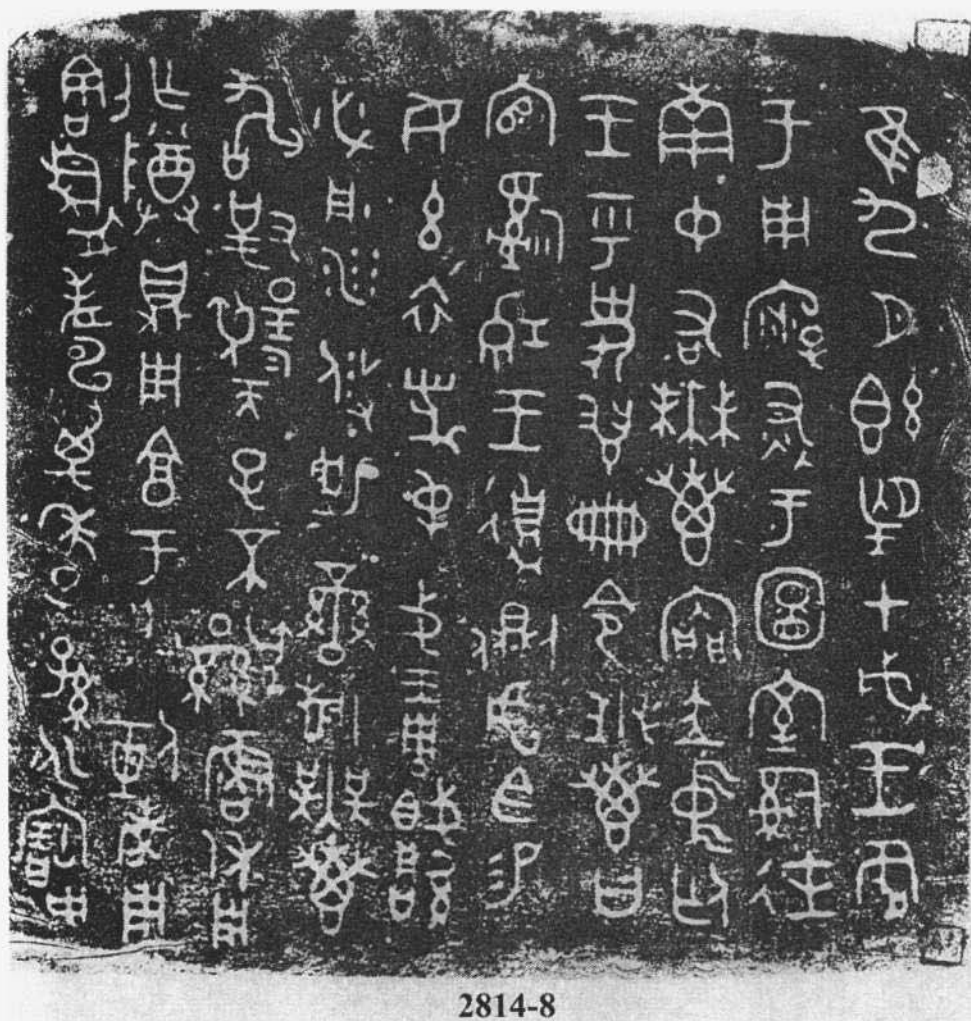 隹九月既望甲戌王各
于周廟述于圖室𤔲徒
南中右無叀內門立中廷
王乎史翏冊令無叀曰
官𤔲穆王遉側虎臣易
女玄衣黹屯戈琱㦸厚
必彤沙攸勒䜌旂無叀
敢對揚天子不顯魯休用
乍尊鼎用享于朕剌考用
割眉壽萬年子孫永寶用
2814-8